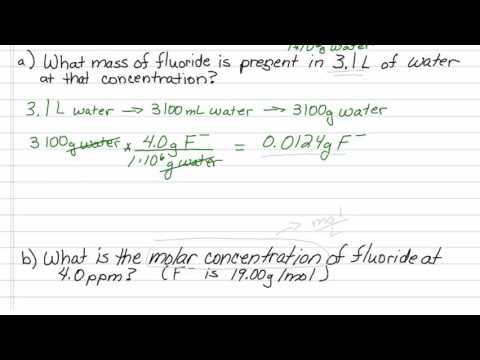 1×10⁶g water
a) What mass of fluoride is present in 3.1L of water
at that concentration?
3.1L water → 3100mL water → 3100g water
3100g water × 4.0g F⁻ / 1×10⁶ g water = 0.0124g F⁻
→ mol/L
b) What is the molar concentration of fluoride at
4.0ppm? (F⁻ is 19.00g/mol)